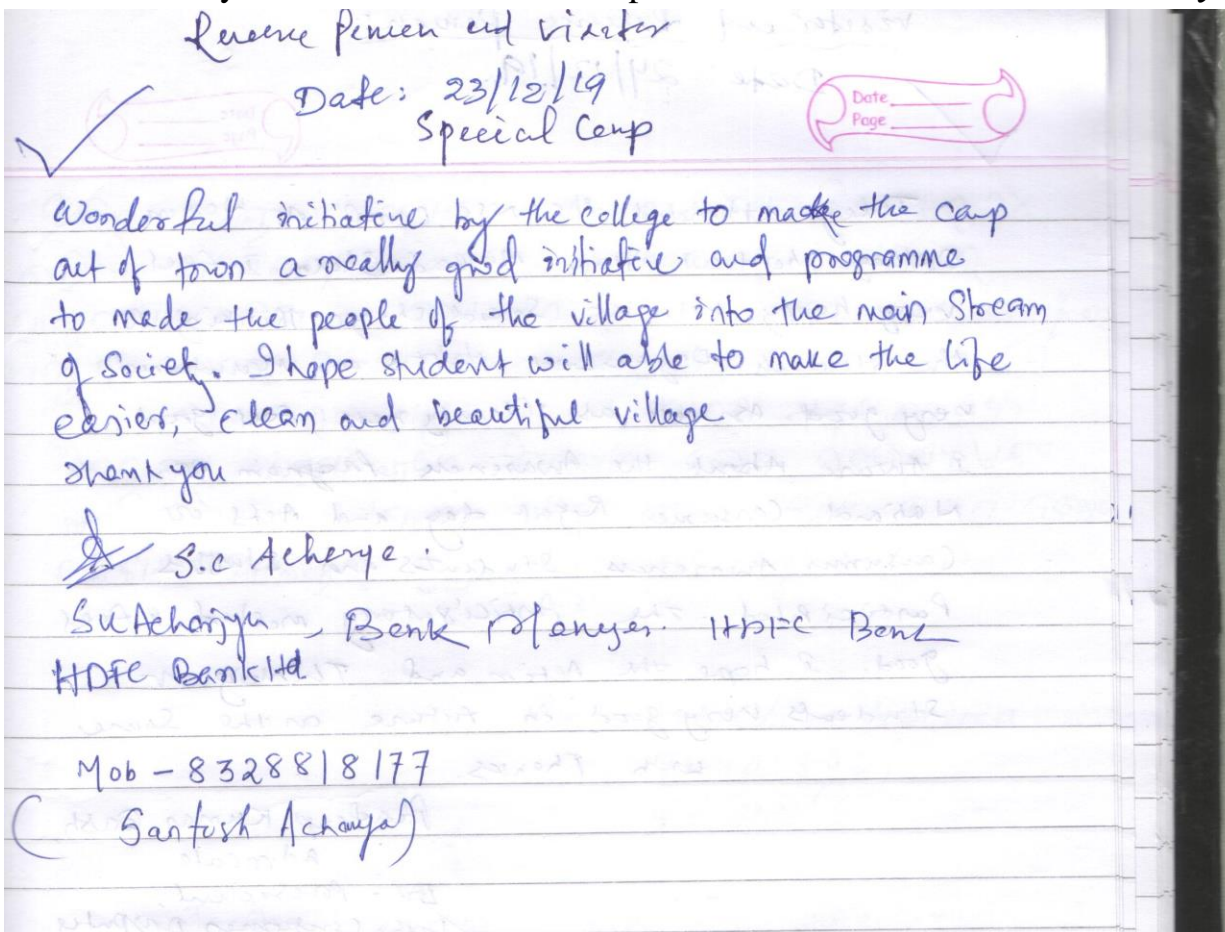 and visitor
Date: 23/12/19
Special Camp
Date
Page
Wonderful initiative by the college to make the camp
out of town a really good initiative and programme
to made the people of the village into the main stream
of Society. I hope student will able to make the life
easier, clean and beautiful village.
Thank you
S.c Acherye.
Acharjya - Bank Manager. HDFC Bank
HDFC Bank ltd
Mob - 8328818177
(Santosh Acharya)